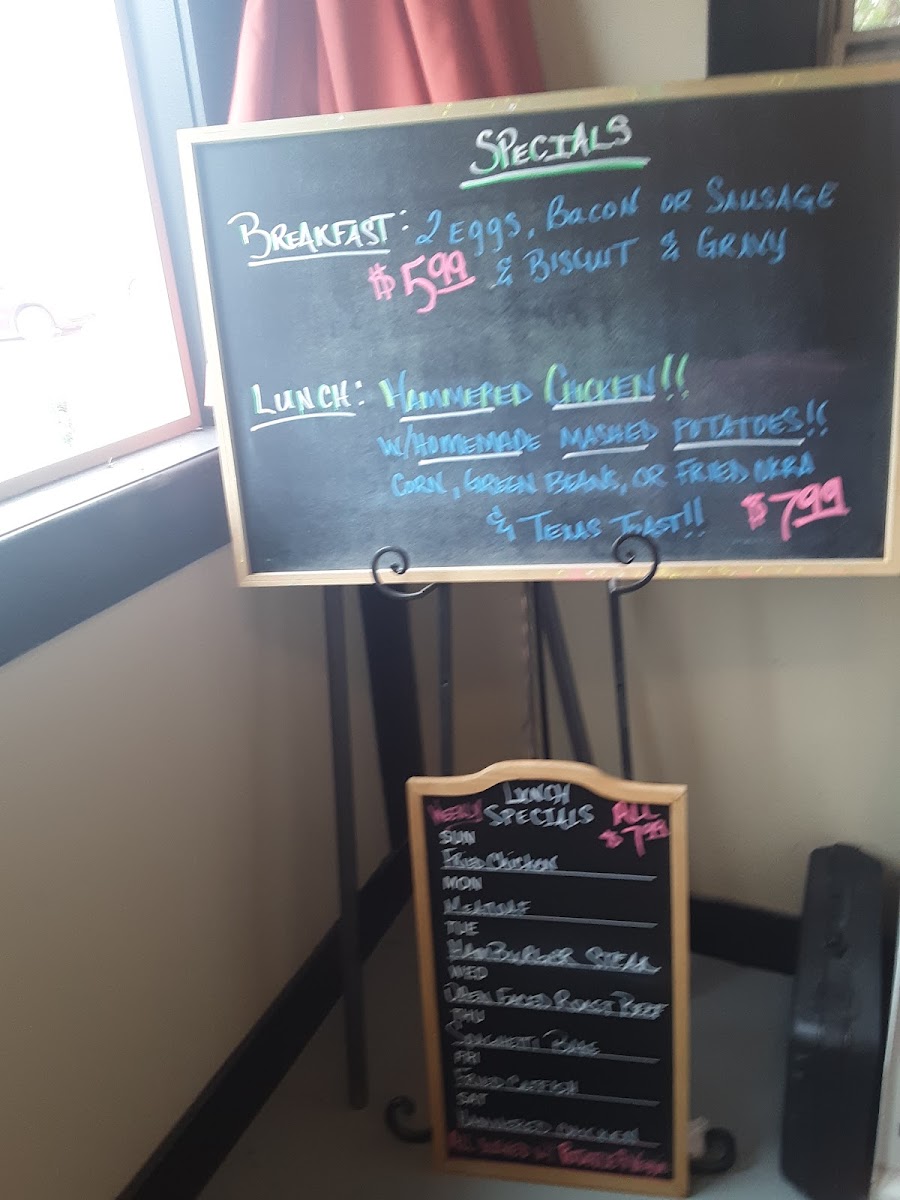 SPECIALS
BREAKFAST: 2 EGGS, BACON OR SAUSAGE
$5.99 & BISCUIT & GRAVY
LUNCH: HAMMERED CHICKEN!!
W/HOMEMADE MASHED POTATOES!!
CORN, GREEN BEANS, OR FRIED OKRA
& TEXAS TOAST!! $7.99
WEEKLY LUNCH SPECIALS ALL $7.99
SUN
FRIED CHICKEN
MON
MEATLOAF
TUE
HAMBURGER STEAK
WED
OPEN FACED ROAST BEEF
THU
SPAGHETTI BAKE
FRI
FRIED CATFISH
SAT
HAMMERED CHICKEN
ALL SERVED W/